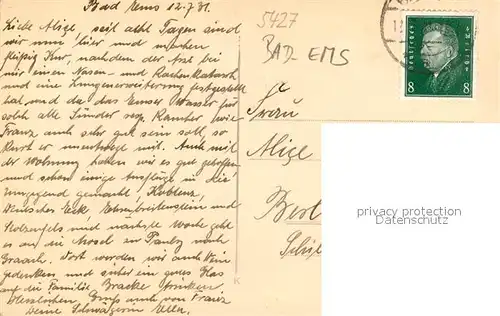 Bad Ems 12.7.31.
Liebe Alize, seit acht Tagen sind
wir nun hier und machen
fleißig Kur, nachdem der Arzt bei
mir einen Nasen- und Rachen Katarrh
und eine Lungenerweiterung festgestellt
hat und da das Emser Wasser für
solch alte Sünder resp. Raucher (wie
Franz auch sehr gut sein soll, so
kurt er unentwegt mit. Auch mit
der Wohnung haben wir es gut getroffen
und schon einige Ausflüge in die
Umgegend gemacht, Koblenz,
Deutsches Eck, Ehrenbreitenstein und
Stolzenfels und nächste Woche geht
es an die Mosel zu Pauly nach
Graach. Dort werden wir auch Dein
gedenken und sicher ein gutes Glas
auf die Familie Bracke trinken.
Herzlichen Gruß auch von Franz
Deine Schwägerin Ella.
5427
BAD-EMS
Deutsches Reich
8 8
Frau
Alize
Berl
Schil
privacy protection